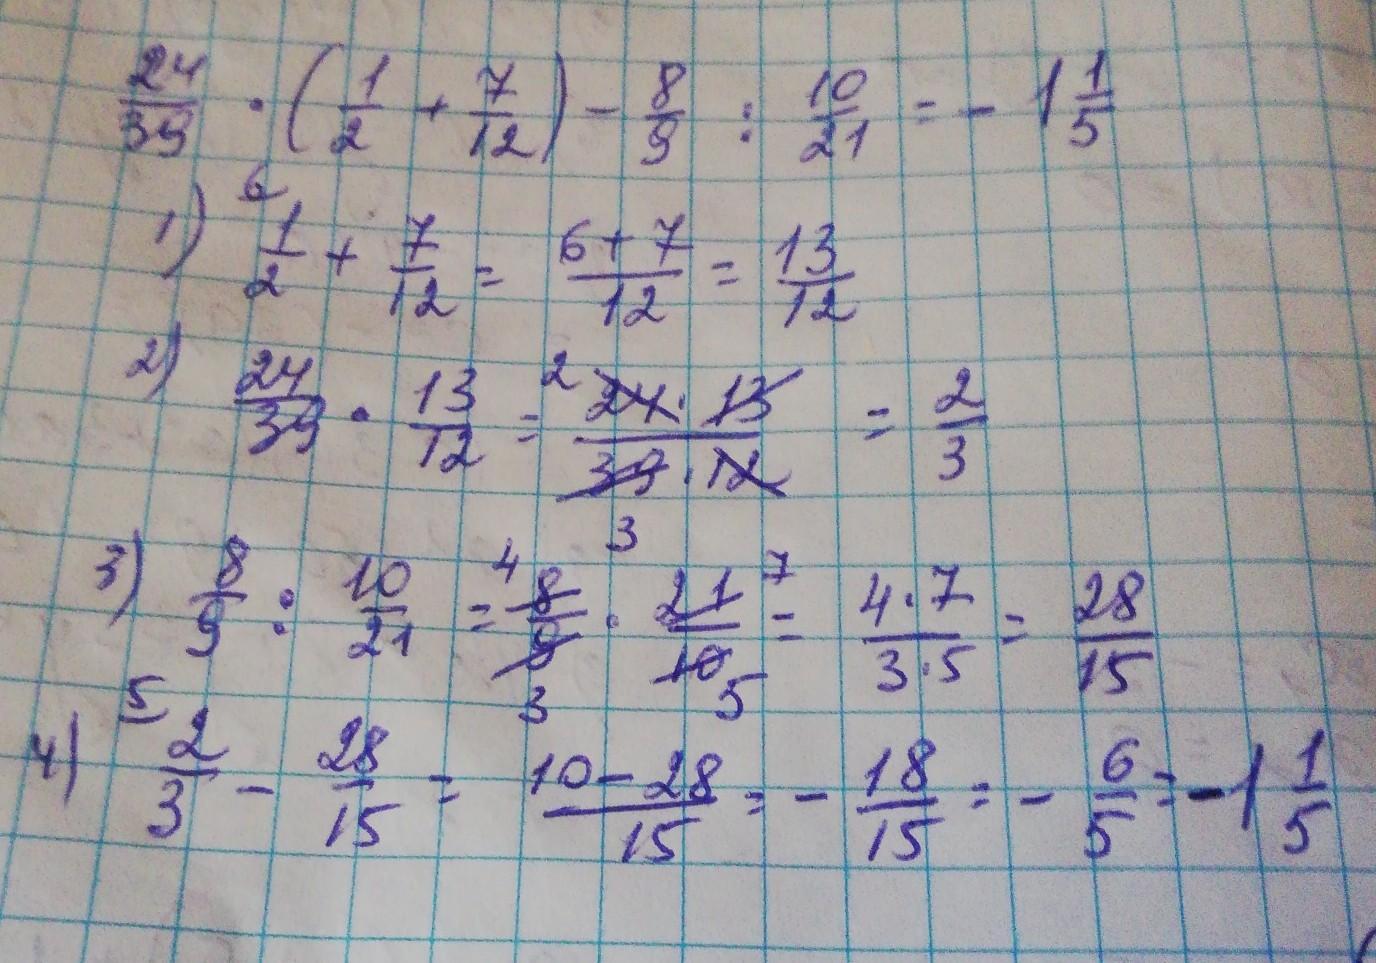 24/39 · (1/2 + 7/12) - 8/9 : 10/21 = - 1 1/5
1) 6 1/2 + 7/12 = 6+7/12 = 13/12
2) 24/39 · 13/12 = 2 24·13/39·12 3 = 2/3
3) 8/9 : 10/21 = 4 8/9 3 · 21/10 7 5 = 4·7/3·5 = 28/15
4) 5 2/3 - 28/15 = 10-28/15 = - 18/15 = - 6/5 = - 1 1/5